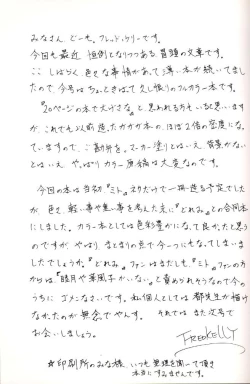 みなさん、どーも。フレッド・ケリーです。
今回も最近恒例となりつつある冒頭の文章です。
ここしばらく、色々な事情があって薄い本が続いてまし
たので今号はちょっときばって久し振りのフルカラー本です。
『20ページの本で大げさな』と思われる方もいると思います
が、これでも以前造ったカラー本の、ほぼ2倍の密度になっ
ていますので、ご勘弁を。マーカー塗りとはいえ、背景がない
とはいえ、やっぱりカラー原稿は大変なのです。
今回の本は当初『ミト』ネタだけで一冊造る予定でした
が、色々、軽い事や重い事を考えた末に『どれみ』との合同本
にしました。カラー本としては色彩豊かになって良かったと思う
のですが、やはり、まとまりの点で今一つにもなってしまいま
したでしょうか。『どれみ』ファンはまだしも、『ミト』ファンの方
からは「睦月や葉風がいない」と責められそうなので今の
うちにゴメンなさい。でも個人としては都先生が描け
なかったのが無念でやんす。それではまた次号で
お会いしましょう。
FRED KELLY
☆印刷所のみな様、いつも無理を聞いて頂き
本当にすみませんです。